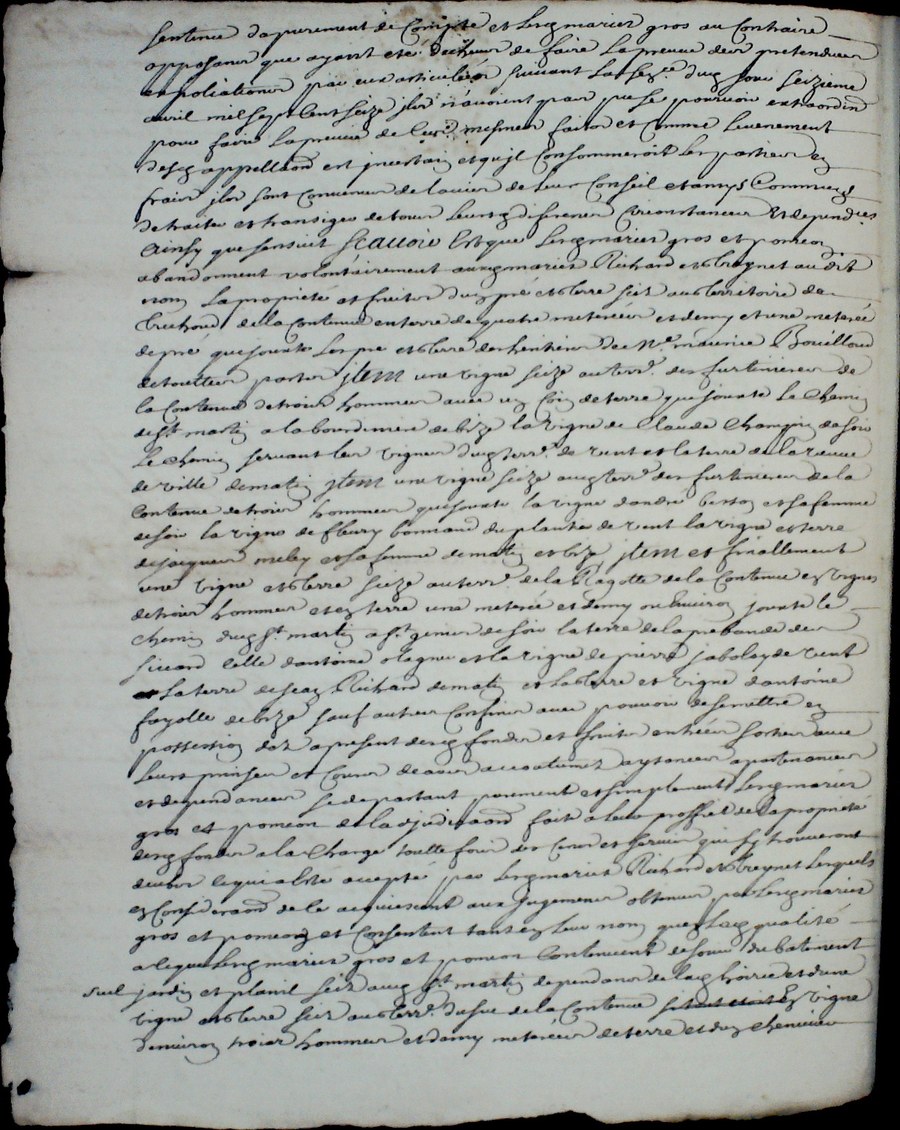 Sentence dapurement de Compte et Lesd mariez gros au Contraire
opposant que ayant eté de faire La preuve des pretendues
expoliations par eux articulées suivant La dud jour seizieme
avril mil sept Cent seize ils n'avoient pas pu se pourvoir extraord
pour faire La preuve de mesmes faits et Comme Levenement
desd appellaõns est incertain et quil Consommeroit Les parties en
frais ils sont Convenus de lavis de leur Conseil et amys Communs
de traiter et transiger de tous leursd diferents Circonstances Et dependces
Ainsy que sensuit Scavoir Est que Lesd mariez gros et pomeon
abandonnent volontairement auxd mariez Richard et Treynet audit
nom La proprieté et fruits dun pré et terre size au territoire de
de la Contenue en terre de quatre meterées et demy et une meterée
de pré que jouxte Les pre et terre des heritiers de Me maurice Bouilloud
de touttes parts jtem une vigne size au terre des furtinieres de
la Contenue de trois hommes avec un Coin de terre que jouxte Le Chemin
de St martin a la de bize la vigne de Claude Champin de soir
Le Chemin servant les vignes dud terre de vent et la terre de la veuve
de ville de matin jtem une vigne size aud terre des furtinieres de la
Contenue de trois hommes que jouxte la vigne dandré besson et sa femme
de soir la vigne de fleury bonnand du plantés de vent la vigne et terre
de jacques meley et sa femme de matin et bize jtem et finallement
une vigne et terre size au terre de la Ragotte de la Contenue en vignes
de trois hommes et en terre une meterée et demy ou Environ jouxte le
Chemin dud St martin a St genis de soir la terre de la prebande des
sicard Celle dantoine et la vigne de pierre jaboley de vent
La terre de jean Richard de matin et La terre et vigne dantoine
fayolle de bize sauf autres Confins avec pouvoir de semettre en
possession dez apresent desd fonds et fruits entrées sorties avec
Leurs prinses et Cours deaux accoutumez aysances apartenances
et dependances se departant purement et simplement Lesd mariez
gros et pomeon de la djudicaõn faite a leur proffit de la proprieté
desd fonds a la Charge touttefois des Cens et servis qui sy trouveront
deubs ce qui a esté accepté par Lesd mariez Richard et Treynet Lesquels
en Consideraõn de ce acquiescent aux jugements obtenus par Lesd mariez
gros et pomeon et Consentent tant en leur nom quesd qualité
a ce que Lesd mariez gros et pomeon Continuent de jouir du batiment
suel jardin et planil size aud St martin dependant de lad hoirie et dune
vigne et terre size au terre dasue de la Contenue En vigne
denviron trois hommes et demy meterées de terre et dun cheneuier